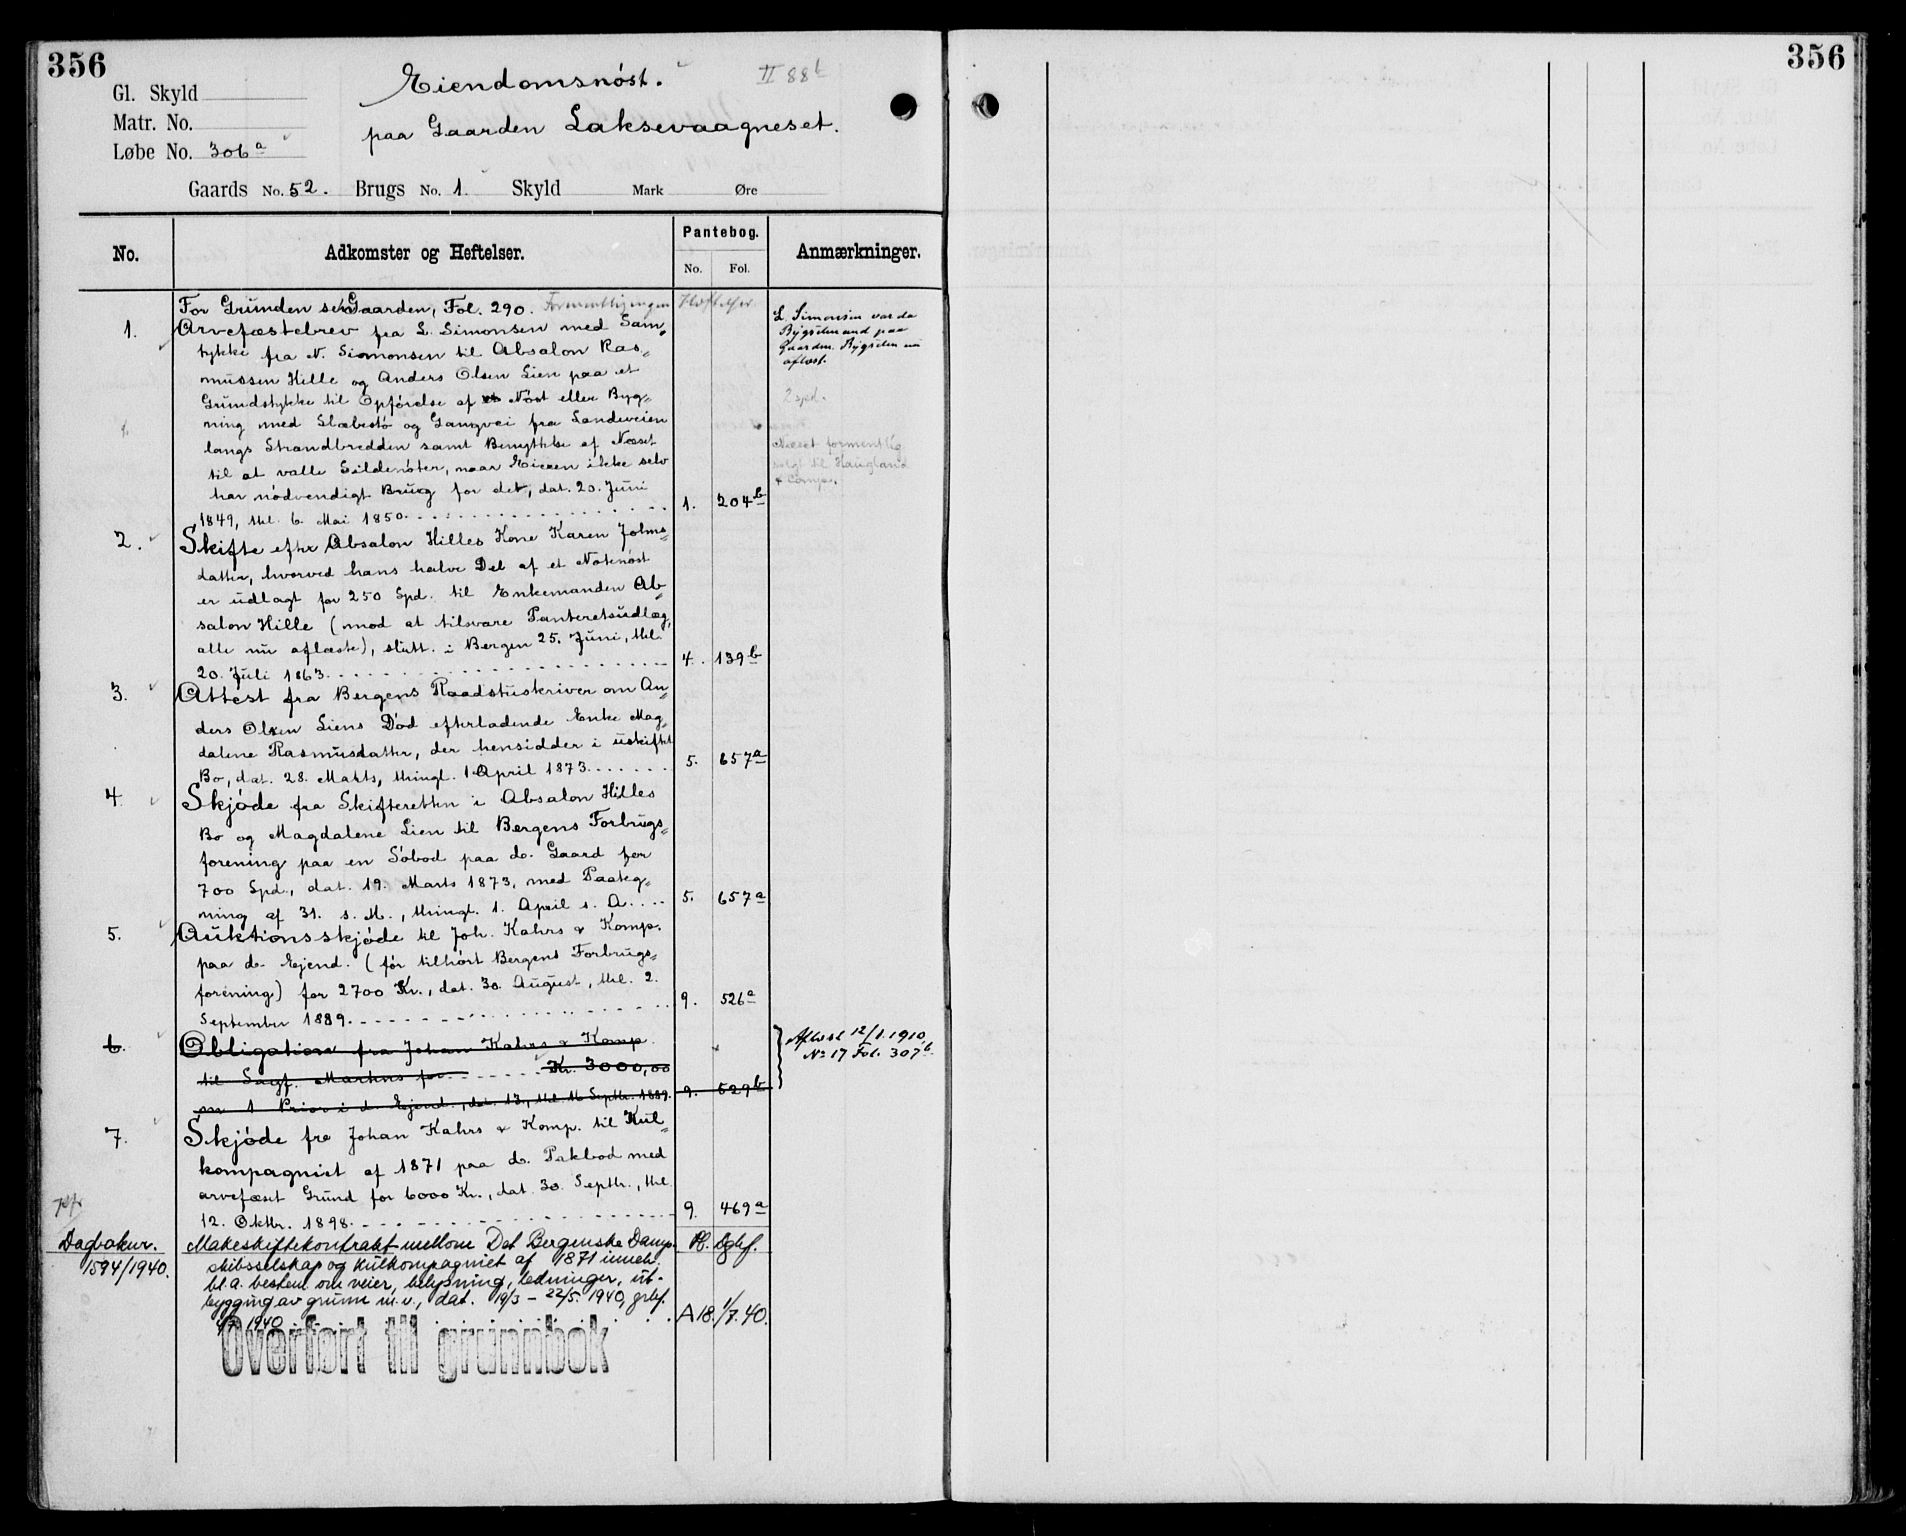 356
356
Eiendomsnøst.
II 88b
Gl. Skyld
Matr. No.
paa Gaarden Laksevaagneset.
Løbe No. 306a
Gaards No. 52. Brugs No. 1. Skyld Mark Øre
No.
Adkomster og Heftelser.
Pantebog.
No. Fol.
Anmærkninger.
For Grunden se Gaarden, Fol. 290.
1. Arvefæstebrev fra L. Simonsen med Sam„
tykke fra N. Simonsen til Absalon Ras„
mussen Hille og Anders Olsen Lien paa et
Grundstykke til Opførelse af Nøst eller Byg„
ning med Slæbestø og Gangvei fra Landeveien
langs Strandbredden samt Benyttelse af Næset
til at valle Sildenøter, naar Eieren ikke selv
har nødvendigt Brug for det, dat. 20. Juni
1849, thl. 6. Mai 1850. 1. 204b
L. Simonsen var da
Bygselmand paa
Gaarden. Bygselen nu
afløst.
2 spd.
Næset formentlig
solgt til Haugland
& Comp.
2. Skifte efter Absalon Hilles Kone Karen Johns„
datter, hvorved hans halve Del af et Notenøst
er udlagt for 250 Spd. til Enkemanden Ab„
salon Hille (mod at tilsvare Panteretsudlæg,
alle nu aflæste), slutt. i Bergen 25. Juni, thl.
20. Juli 1863. 4. 139b
3. Attest fra Bergens Raadstuskriver om An„
ders Olsen Liens Død efterladende Enke Mag„
dalene Rasmusdatter, der hensidder i uskiftet
Bo, dat. 28. Marts, thingl. 1 April 1873. 5. 657a
4. Skjøde fra Skifteretten i Absalon Hilles
Bo og Magdalene Lien til Bergens Forbrugs„
forening paa en Søbod paa do. Gaard for
700 Spd., dat. 19. Marts 1873, med Paateg„
ning af 31. s. M., thingl. 1. April s. A. 5. 657a
5. Auktionsskjøde til Joh. Kahrs & Komp.
paa do. Ejend. (før tilhørt Bergens Forbrugs„
forening) for 2700 Kr., dat. 30. August, thl. 2.
September 1889. 9. 526a
6. Obligation fra Johan Kahrs & Komp.
til Sagf. Martens for Kr. 3000,00
m 1 Prior. i do. Ejend., dat. 13., thl. 16 Septbr. 1889. 9. 529b
Aflæst 12/1.1910,
No 17 Fol. 307b.
7. Skjøde fra Johan Kahrs & Komp. til Kul„
kompagniet af 1871 paa do. Pakbod med
arvefæset Grund for 6000 Kr., dat. 30. Septbr., thl.
12. Oktbr. 1898. 9. 469a
Dagboknr.
1594/1940.
Makeskiftekontrakt mellom Det Bergenske Damp-
skibsselskap og Kulkompagniet af 1871 inneh.
bl.a. bestem. om veier, belysning, ledninger, ut-
bygging av grunn m.v., dat. 19/3 - 22/5. 1940, grbf.
1/7 1940 A 18. 1/7. 40.
Overført til grunnbok